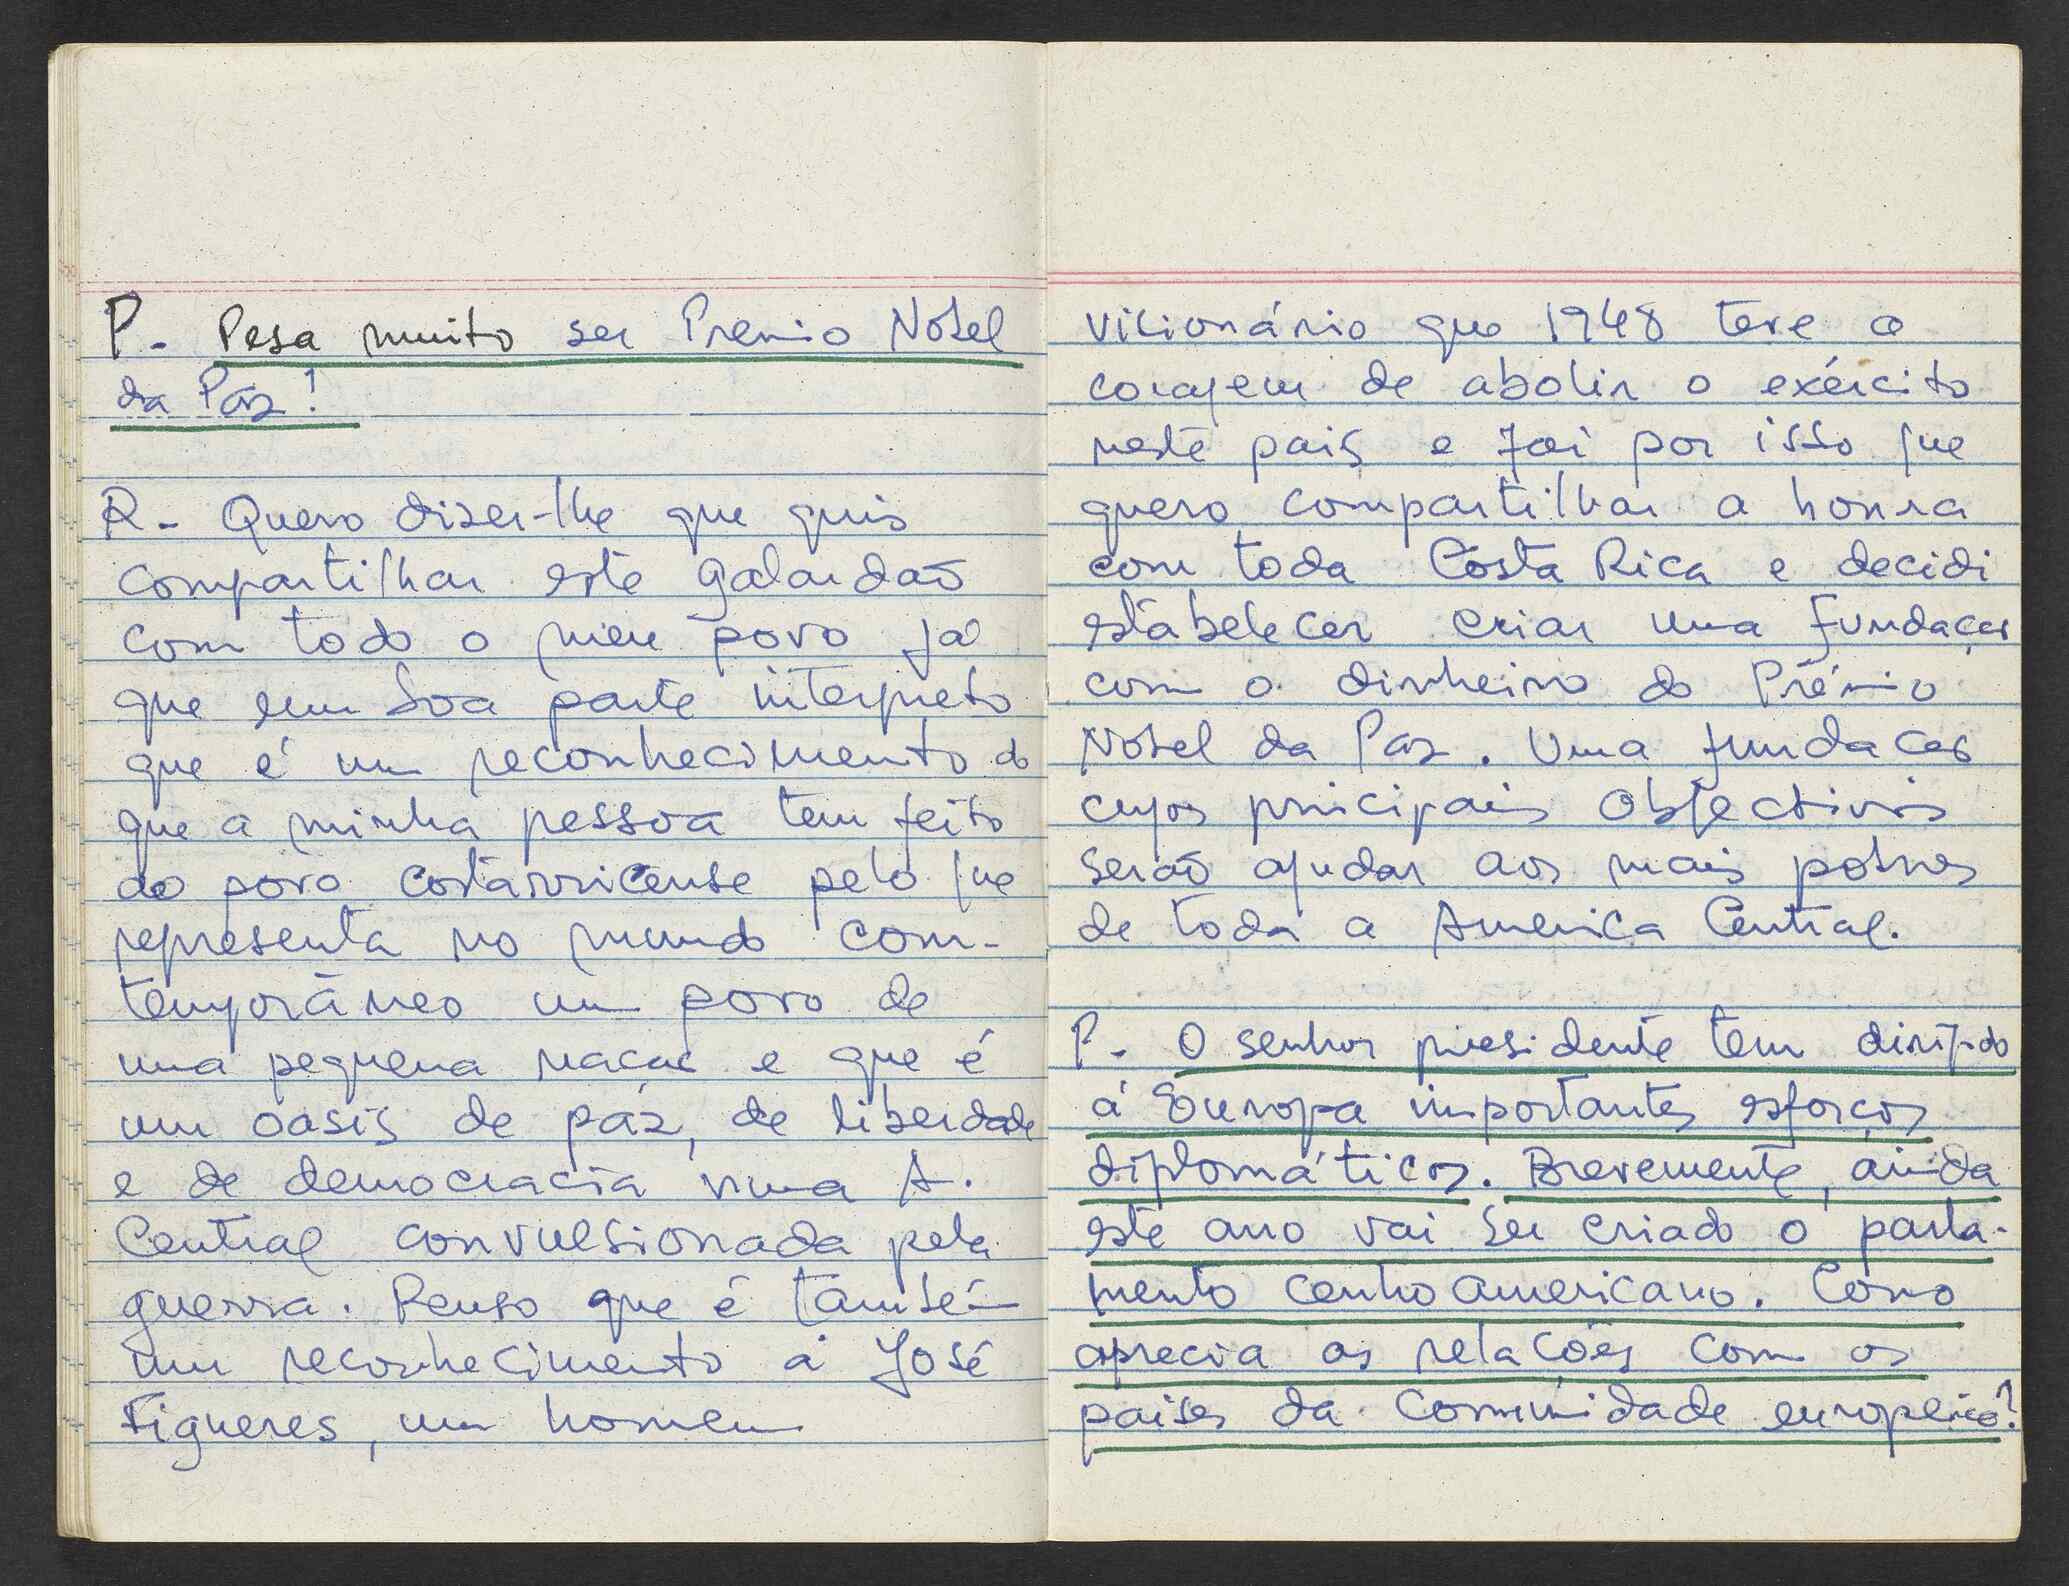 P. Pesa muito ser Premio Nobel
da Páz!
R- Quero dizer-lhe que quis
compartilhar este galardaõ
com todo o meu povo já
que em boa parte interpreto
que é um reconhecimento do
que a minha pessoa tem feito
ao povo costarricense pelo que
representa no mundo com-
temporáneo um povo de
uma pequena nacao e que é
um oásis de páz, de liberdade
e de democracia numa A.
Central convulsionada pela
guerra. Penso que é também
um reconhecimento a José
Figueres, um homem
visionário que 1948 teve a
coragem de abolir o exército
neste pais e foi por isso que
quero compartilhar a honra
com toda Costa Rica e decidi
estabelecer criar uma fundaçao
com o dinheiro do Prémio
Nobel da Paz. Uma fundaçao
cujos pricipais objectivos
seraõ ajudar aos mais pobres
de toda a America Central.
P- O senhor presidente tem dirigido
á Europa importantes esforços
diplomáticos. Brevemente, ainda
este ano vai ser criado o parla-
mento centroamericano. Como
aprecia as relações com os
paises da Comunidade europeia?